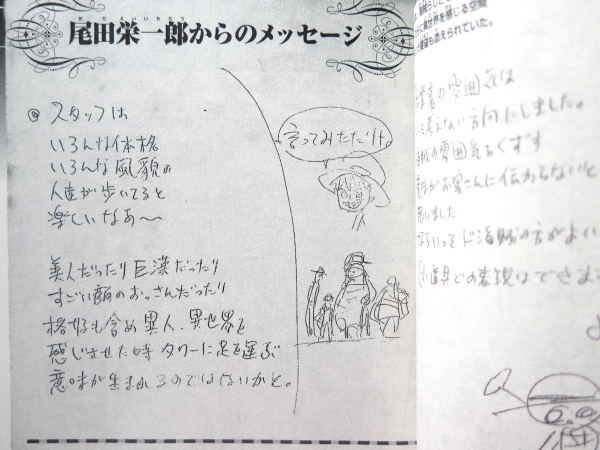 尾田栄一郎からのメッセージ
◎スタッフは
いろんな体格
いろんな風貌の
人達が歩いてると
楽しいなあ〜
美人だったり巨漢だったり
すごい顔のおっさんだったり
格好も含め異人、異世界を
感じさせた時タワーに足を運ぶ
意味が生まれるのではないかと。
言ってみただけ。
異世界を感じる空間
も添えられていた。
の雰囲気は
ない方向にしました。
の雰囲気をくずす
がお客さんに伝わらないと
思いました
いっそド海賊の方がよい
道具での表現はできま